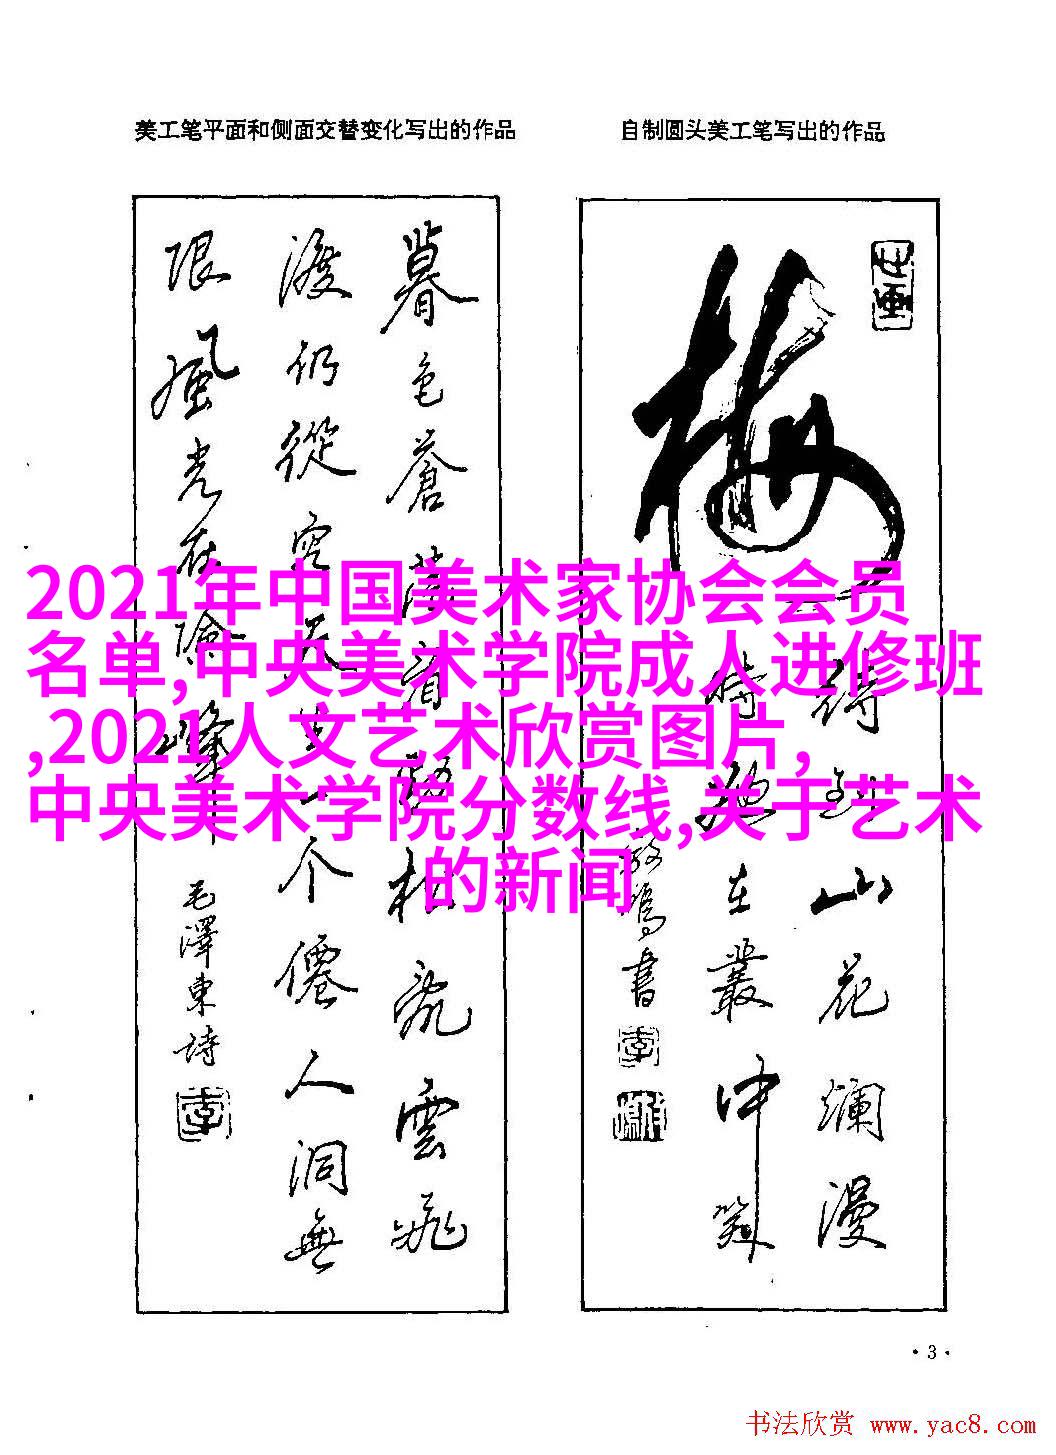 美工笔平面和侧面交替变化写出的作品
自制圆头美工笔写出的作品
暮色苍茫看劲松乱雲飛
渡仍從容天生一个僊人洞無
限風光在險峰
毛澤東詩
梅
待到山花爛漫
時她在叢中笑
書
2021年中国美术家协会会员
名单,中央美术学院成人进修班
,2021人文艺术欣赏图片,
中央美术学院分数线,关于艺术
的新闻
·3·
书法欣赏 www.yac8.com